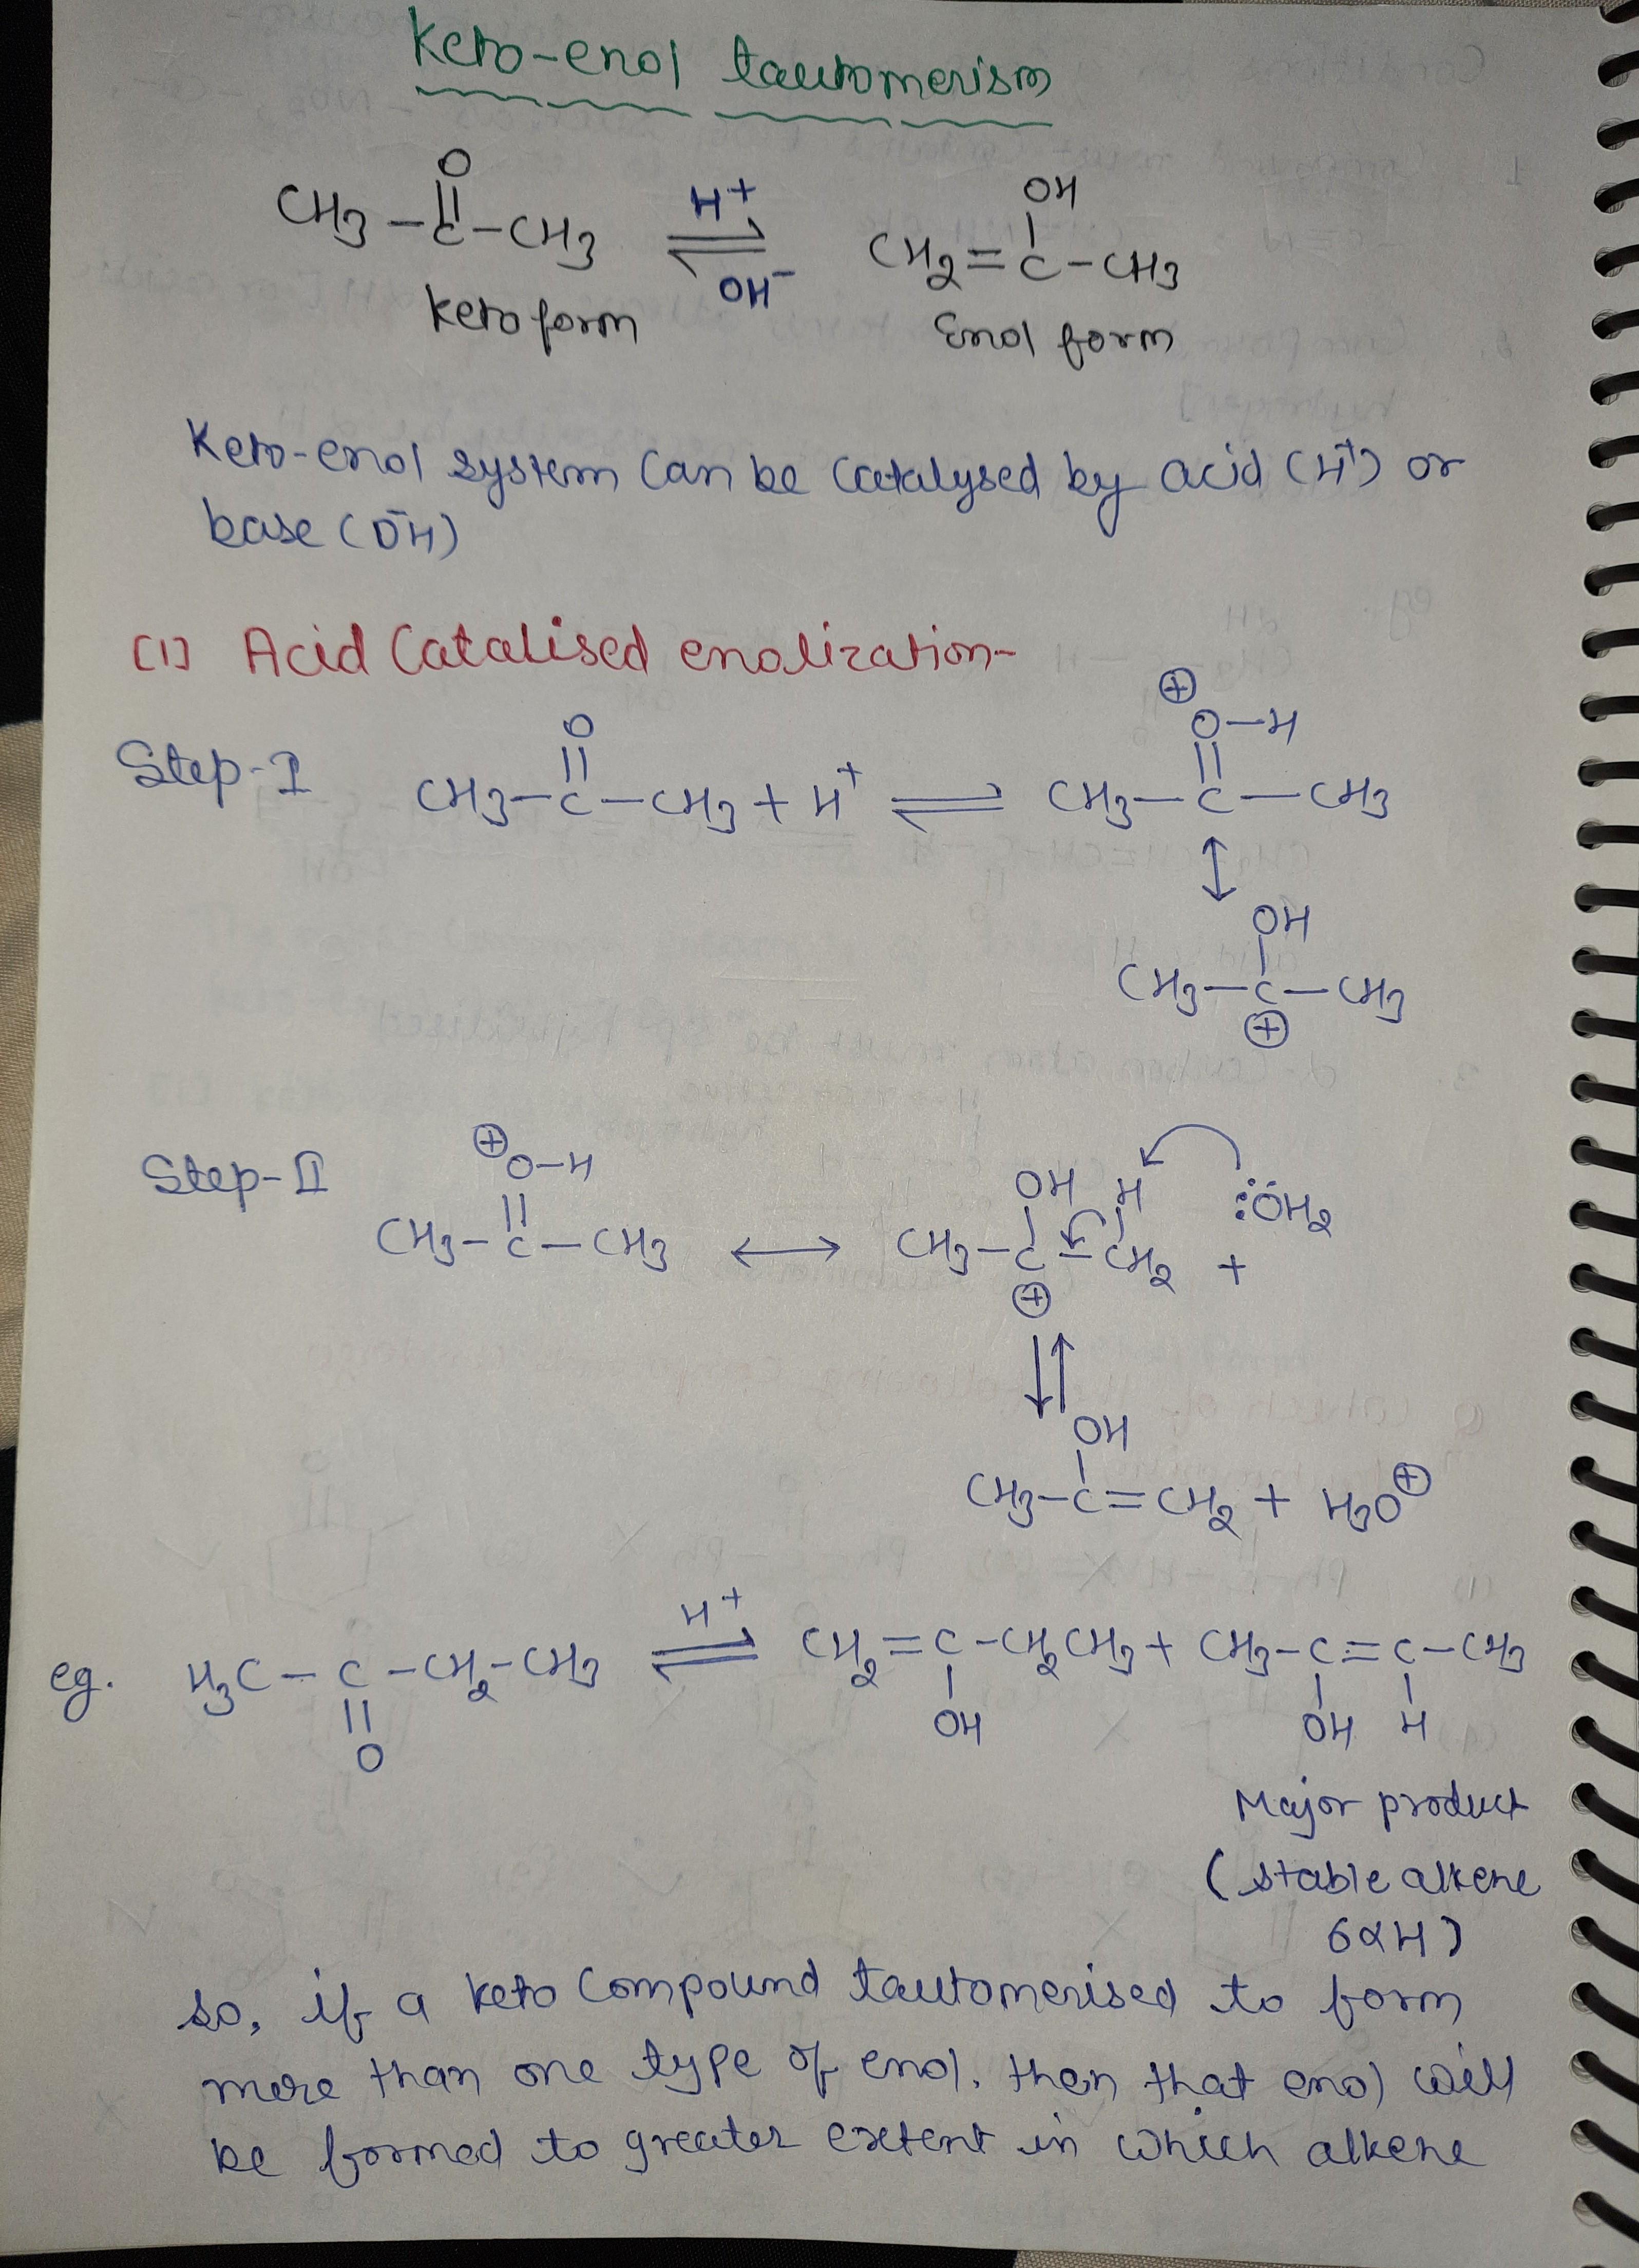 Keto-enol tautomerism
O
||
CH3 - C - CH3 ⇌ CH2 = C - CH3
H+
OH-
OH
Keto form
Enol form
Keto-enol system can be catalysed by acid (H+) or
base (ŌH)
(1) Acid Catalised enolization-
Step-I
O
||
CH3 - C - CH3 + H+ ⇌ CH3 - C - CH3
⊕
O - H
||
↕
OH
|
CH3 - C - CH3
⊕
Step-II
⊕
O - H
||
CH3 - C - CH3 ↔ CH3 - C - CH2 +
OH H :ÖH2
⊕
⇅
OH
|
CH3 - C = CH2 + H3O⊕
eg. H3C - C - CH2 - CH3 ⇌ CH2 = C - CH2CH3 + CH3 - C = C - CH3
H+
||
O
OH
OH H
Major product
(stable alkene
6αH)
so, if a keto compound tautomerised to form
more than one type of enol, then that enol will
be formed to greater extent in which alkene